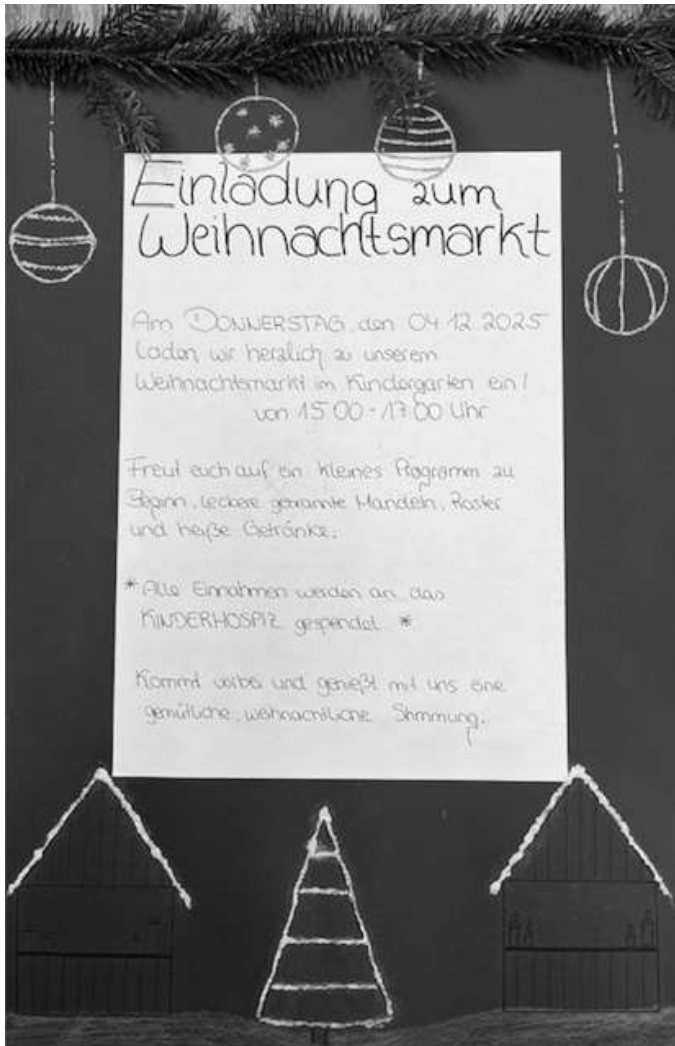 Einladung zum
Weihnachtsmarkt
Am DONNERSTAG, den 04.12.2025
Laden wir herzlich zu unserem
Weihnachtsmarkt im Kindergarten ein!
von 15.00-17.00 Uhr
Freut euch auf ein kleines Programm zu
Beginn, leckere gebrannte Mandeln, Roster
und heiße Getränke.
*Alle Einnahmen werden an das
KINDERHOSPIZ gespendet. *
Kommt vorbei und genießt mit uns eine
gemütliche, weihnachtliche Stimmung.